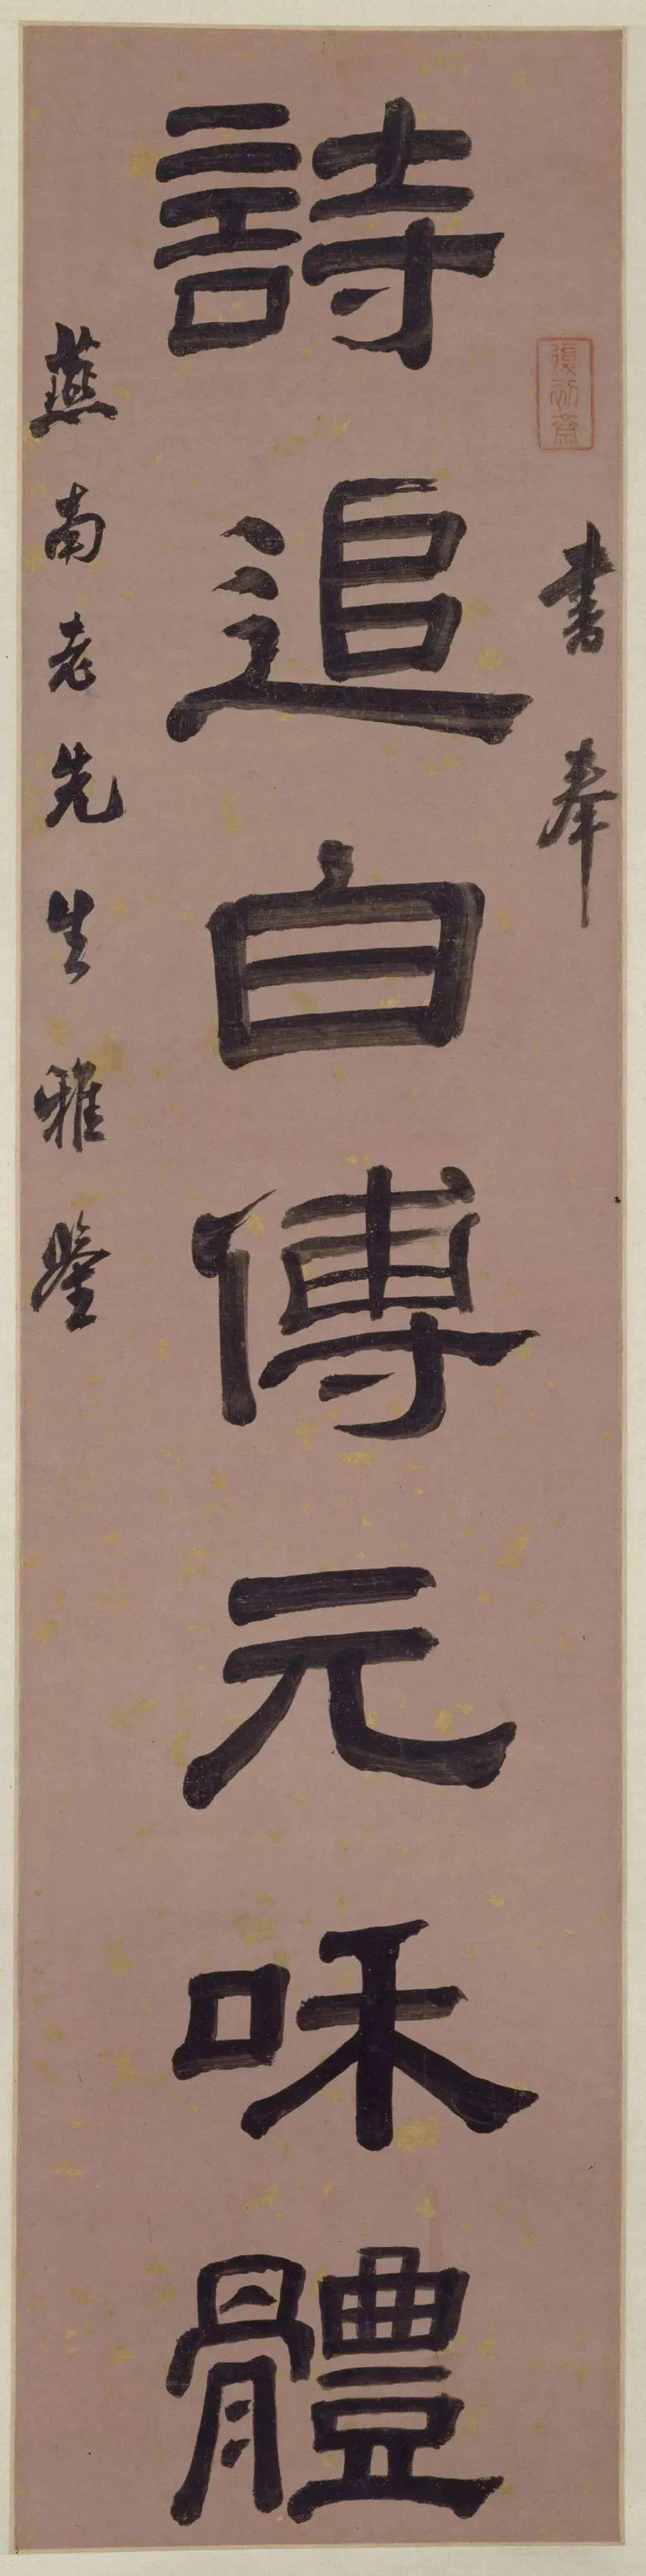 復初齋
書奉
詩追白傅元和體
燕南老先生雅鑒